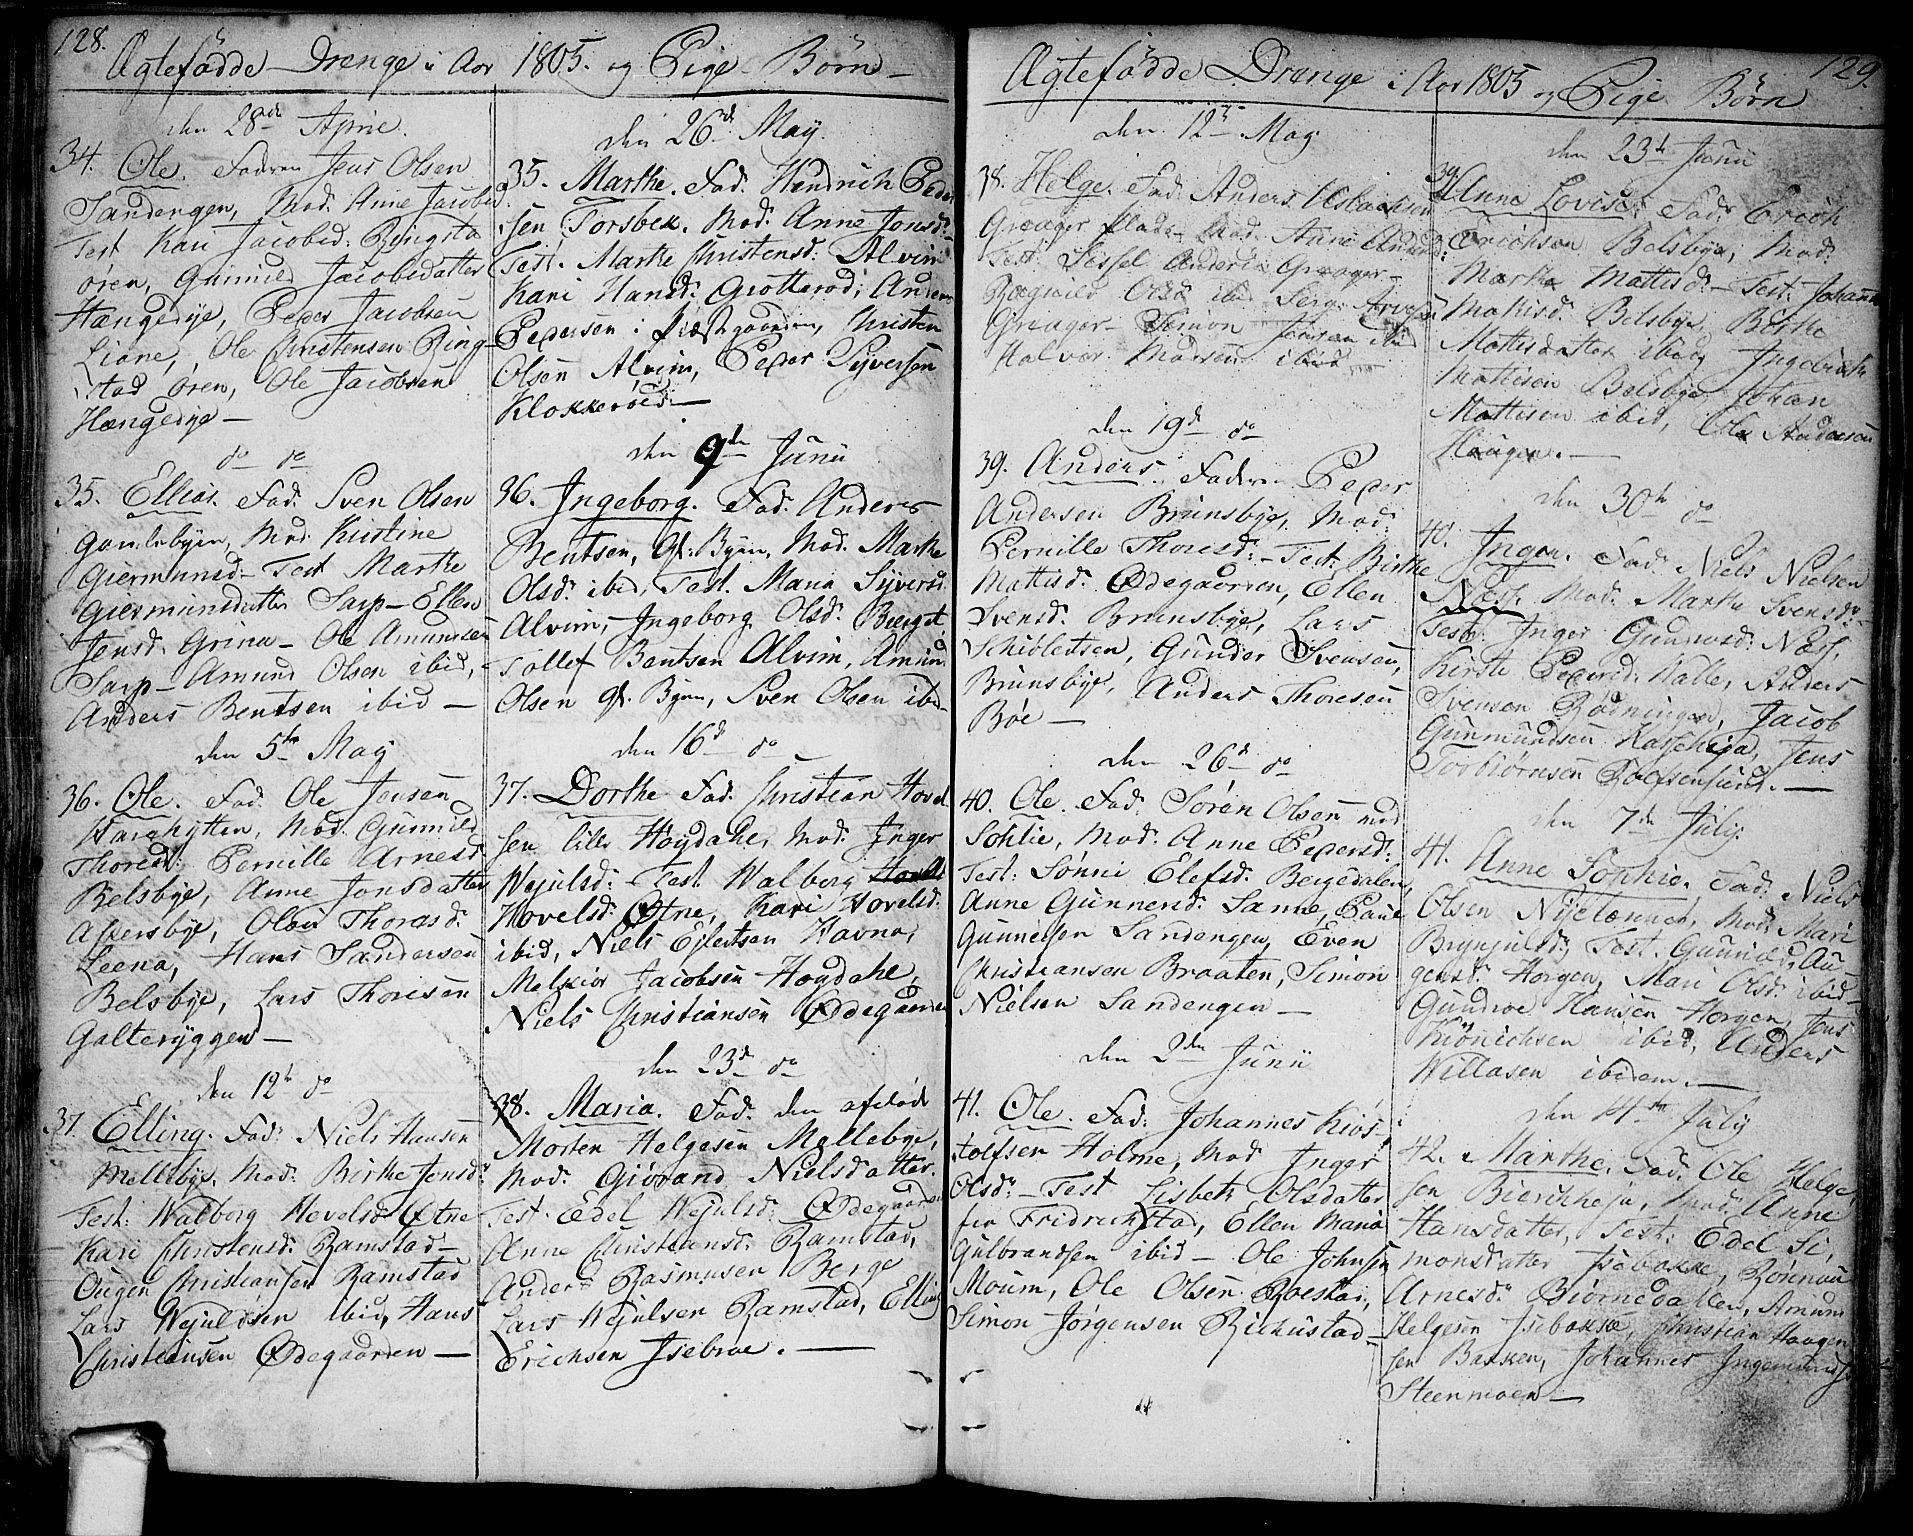 128.
Ægtefødde Drenge i Aar 1805. og Pige Børn
den 28de April
34. Ole. Faderen Jens Olsen
Sandengen, Mod. Anne Jacobsd.
Test Kari Jacobsd. Ringsta
øren, Gunnild Jacobsdatter
Hængedye, Peder Jacobsen
Liane, Ole Christensen Ring-
stad øren, Ole Jacobsen
Hængedye
do do
35. Ellias. Fad. Sven Olsen
Gamlebyen, Mod. Kirstine
Giermunsd. Test Marthe
Giermunsdatter Sarp Ellen
Jensd. Grina Ole Amundsen
Sarp Amund Olsen ibid,
Anders Bentsen ibid
den 5te May
36. Ole. Fad. Ole Jensen
Mod. Gunnild
Thoresd: Pernille Arnesd.
Belsbye, Anne Jonsdatter
Olea Thoresd.
Leena, Hans Sandersen
Belsbye, Lars Thoresen
Galteryggen
den 12te do
37. Elling. Fad. Niels Hansen
Mellebye, Mod. Birthe Jensd.
Test: Walborg Hovelsd Øtne
Kari Christensd: Ramstad
Ougen Christiansen Ramstad
Lars Wejulsen ibid, Hans
Christiansen Ødegaarden
den 26de May
35. Marthe. Fad. Hendrich Peder
sen Torsbek. Mod. Anne Jonsd.
Test. Marthe Christensd: Alvim
Kari Hansd: Grotterød, Anders
Pedersen i Præstgaarden, Christen
Olsen Alvim, Peder Syversen
Klokkerød
den 9de Junii
36. Ingeborg. Fad. Anders
Bentsen, Gl. Byen, Mod. Marthe
Olsd. ibid, Test. Maria Syversd.
Alvim, Ingeborg Olsd.
Tollef Bentsen Alvim, Amun
Olsen gl. Byen, Sven Olsen ibid
den 16de do
37. Dorthe Fad. Christian Hovel
sen lille Høydahl, Mod. Inger
Wejulsd: Test. Walborg
Hovelsd. Øtne, Kari Hovelsd.
ibid, Niels Ejlertsen Havna,
Melkior Jacobsen Høydahl,
Niels Christiansen Ødegaarden
den 23de do
38. Maria. Fad. den afdøde
Morten Helgesen Mellebye,
Mod. Giørand Nielsdatter.
Test. Edel Wejulsd: Ødegaarden
Anne Christiansd: Ramstad,
Anders Rasmusen Berge
Lars Wejulsen Ramstad, Elling
Erichsen Isebroe.
129.
Ægtefødde Drenge i Aar 1805 og Pige Børn
den 12te May
38. Helge. Fad. Anders
Greager Mod. Anne
Test: Sissel Greager
Ragnild Olsd ibid
Greager Simon Jensen ibid
Halvor ibid
den 19de do
39. Anders. Faderen Peder
Andersen Brunsbye, Mod:
Pernille Thoresd: Test: Birthe
Mattisd. Ødegaarden, Ellen
Svensd: Brunsbye, Lars
Schiøletsen, Gunder Svensen,
Brunsbye, Anders Thoresen
Bøe
den 26de do
40. Ole. Fad. Søren Olsen
Sohlie, Mod. Anne Pedersd:
Test: Sønni Elefsd. Bergedalen,
Anne Gunnersd. Sanne, Paul
Gunnelsen Sandengen, Even
Christiansen Braaten, Simon
Nielsen Sandengen
den 2den Junii
41. Ole. Fad. Johannes Kiøs-
tolfsen Holme, Mod Inger
Olsd. Test Lisbeth Olsdatter
fra Fridrichstad, Ellen Maria
Gulbrandsen ibid Ole Johnsen
Moum, Ole Olsen
Simon Jørgensen
den 23de Junii
39. Anne Lovise. Fad. Erich
Erichsen Belsbye, Mod.
Marthe Mattisd. Test: Johanne
Mattisd. Belsbye, Birthe
Mattisdatter ibid,
Mattisen Belsbye Johan
Mattisen ibid, Ole Andersen
Haugen.
den 30te do
40. Inger. Fad. Niels Nielsen
Næs. Mod. Marthe Svensd.
Test. Inger Gundersd. Næs,
Kirste Pedersd. Walle, Anders
Svensen Rødningen, Jacob
Gunmundsen Jens
Torbiørnsen
den 7de July
41. Anne Sophie. Fad. Niels
Olsen Mod. Mari
Brynjulsd. Test. Gunild Au-
gensd. Horgen, Mari Olsd. ibid
Gundroe Hansen Horgen, Jens
ibid, Anders
Willasen ibidem.
den 14de July
42. Marthe. Fad. Ole Helge
sen Mod. Anne
Hansdatter, Test: Edel Si,
monsdatter Isebakke,
Arnesd. Biørnedalen, Amun
Helgesen Isebakke, Christian Haagen
sen Bakken, Johannes
Steenmoen